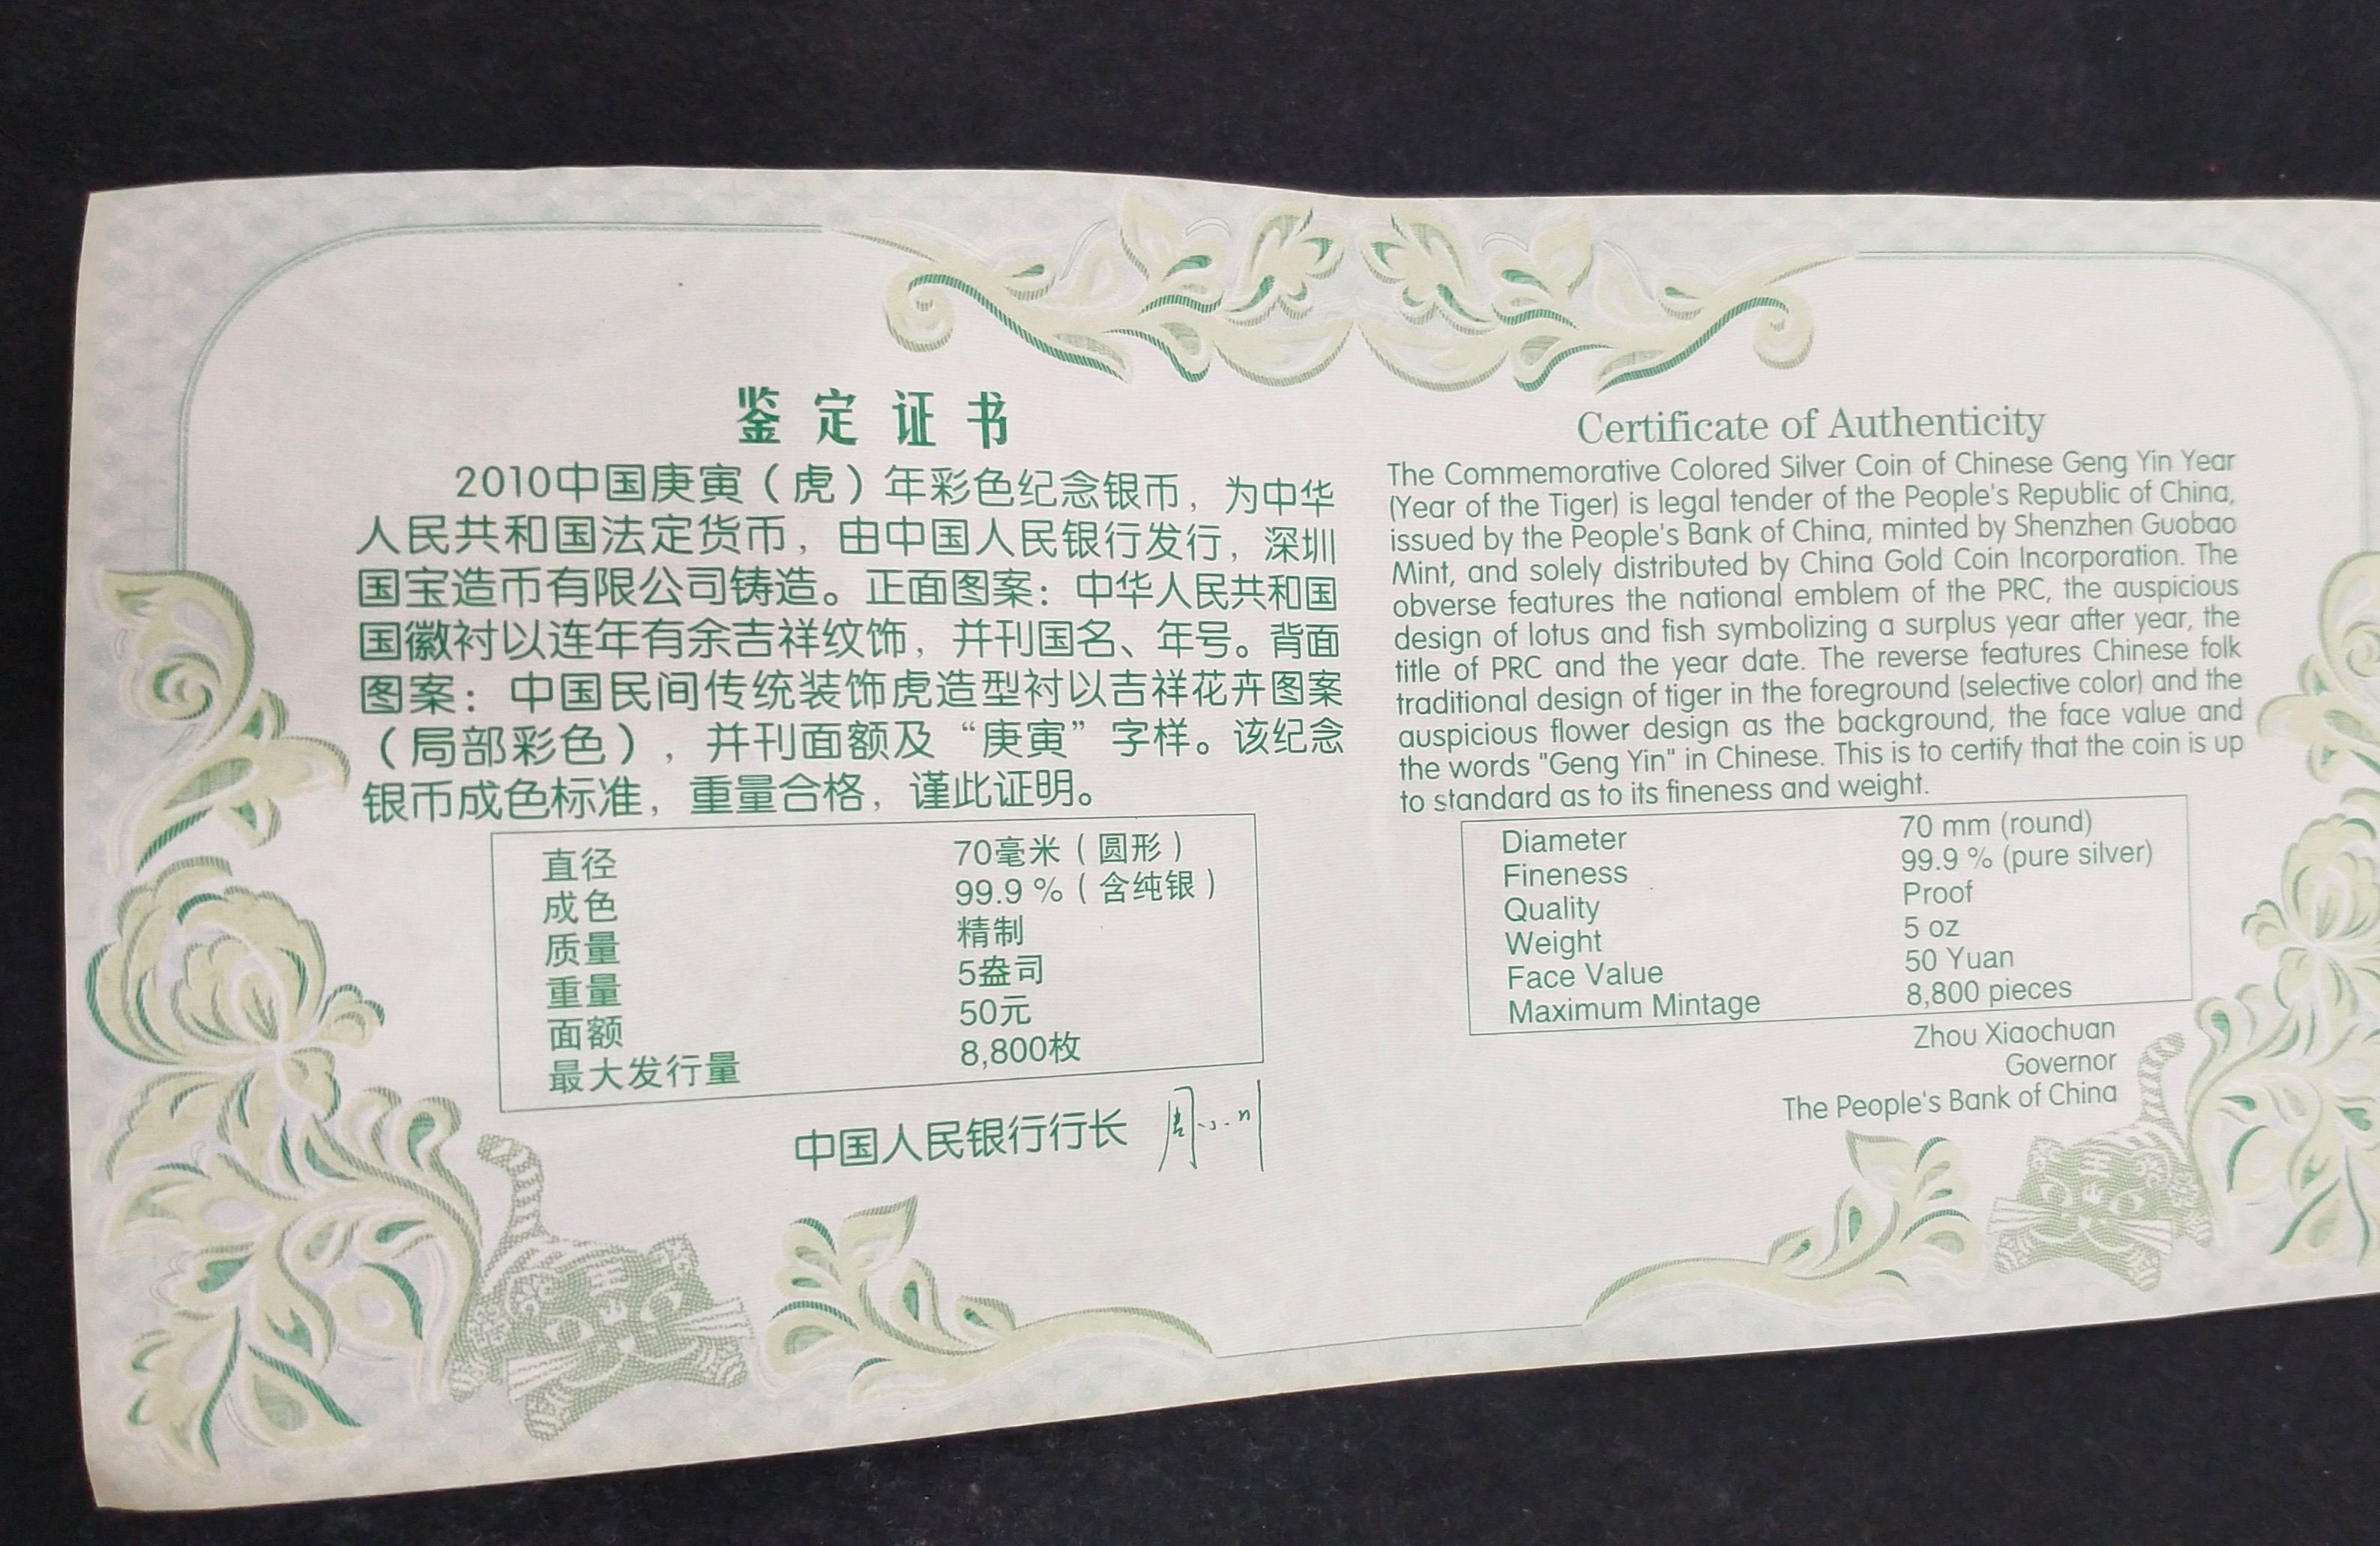 鉴定证书
2010中国庚寅（虎）年彩色纪念银币，为中华
人民共和国法定货币，由中国人民银行发行，深圳
国宝造币有限公司铸造。正面图案：中华人民共和国
国徽衬以连年有余吉祥纹饰，并刊国名、年号。背面
图案：中国民间传统装饰虎造型衬以吉祥花卉图案
（局部彩色），并刊面额及“庚寅”字样。该纪念
银币成色标准，重量合格，谨此证明。
直径 70毫米（圆形）
成色 99.9 %（含纯银）
质量 精制
重量 5盎司
面额 50元
最大发行量 8,800枚
中国人民银行行长 周小川
Certificate of Authenticity
The Commemorative Colored Silver Coin of Chinese Geng Yin Year
(Year of the Tiger) is legal tender of the People's Republic of China,
issued by the People's Bank of China, minted by Shenzhen Guobao
Mint, and solely distributed by China Gold Coin Incorporation. The
obverse features the national emblem of the PRC, the auspicious
design of lotus and fish symbolizing a surplus year after year, the
title of PRC and the year date. The reverse features Chinese folk
traditional design of tiger in the foreground (selective color) and the
auspicious flower design as the background, the face value and
the words "Geng Yin" in Chinese. This is to certify that the coin is up
to standard as to its fineness and weight.
Diameter 70 mm (round)
Fineness 99.9 % (pure silver)
Quality Proof
Weight 5 oz
Face Value 50 Yuan
Maximum Mintage 8,800 pieces
Zhou Xiaochuan
Governor
The People's Bank of China